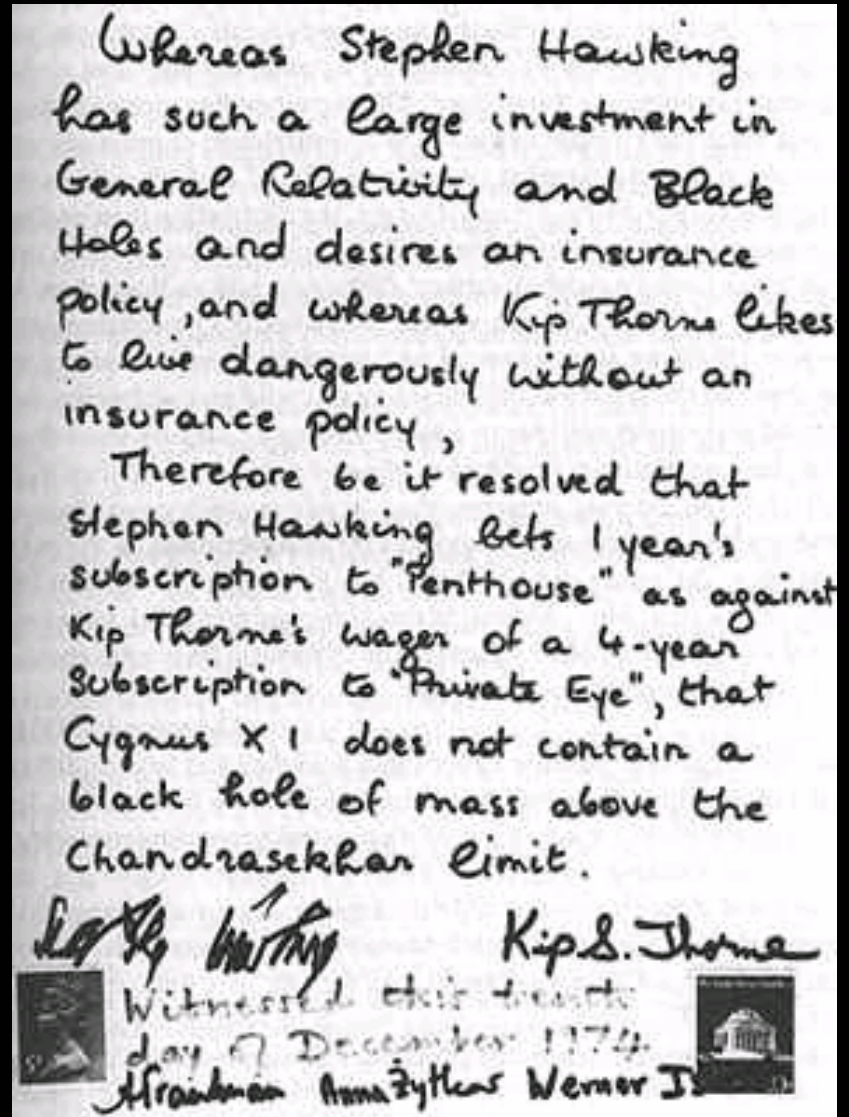 Whereas Stephen Hawking
has such a large investment in
General Relativity and Black
Holes and desires an insurance
policy, and whereas Kip Thorne likes
to live dangerously without an
insurance policy,
Therefore be it resolved that
Stephen Hawking bets 1 year's
subscription to "Penthouse" as against
Kip Thorne's wager of a 4-year
subscription to "Private Eye", that
Cygnus X 1 does not contain a
black hole of mass above the
Chandrasekhar limit.
Kip S. Thorne
Witnessed this tenth
day of December 1974
Anna Żytkow Werner